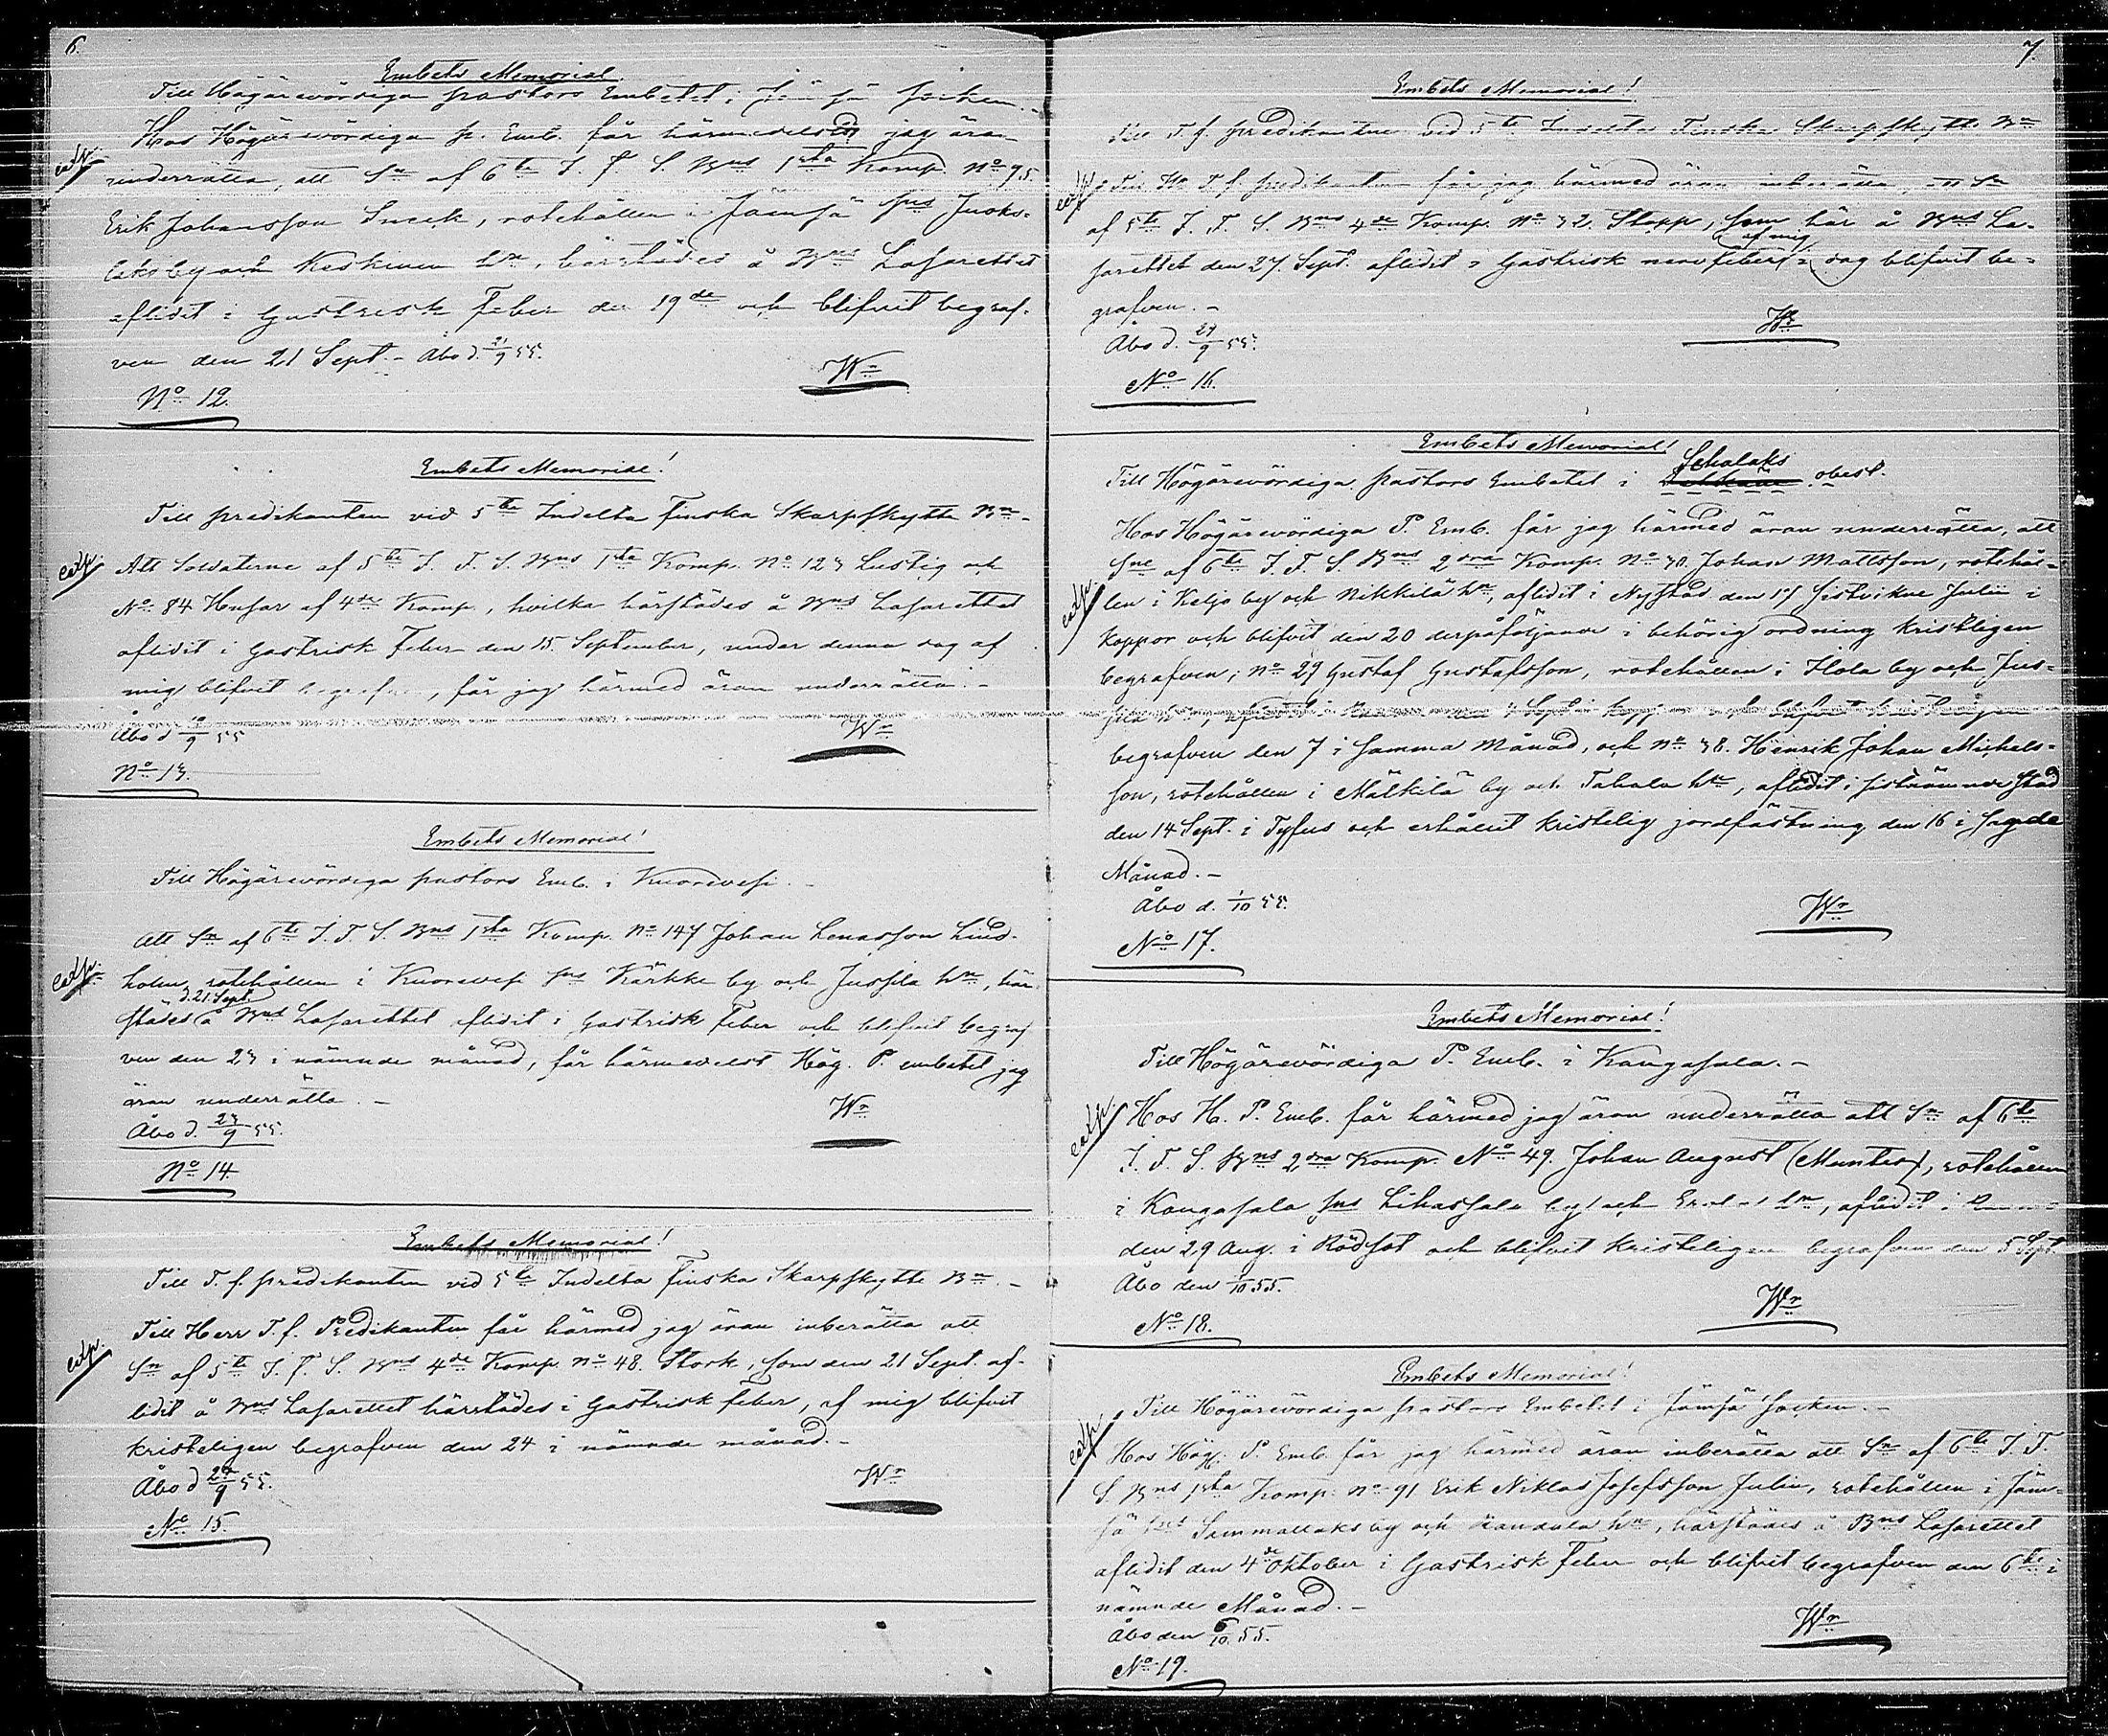 6.
Embets Memorial
Till Högärevördiga pastors Embetet i Jämsä socken.
Hos Högärevördiga P. Emb. får härmedelst jag äran
exp. underrätta, att Sn af 6te I. F. S. Bns 1sta Komp. No 95.
Erik Johansson Sneck, rotehållen i Jämsä Sns Juoks-
laks by och Keskinen hn, härstädes å Bns Lasarettet
aflidit i Gastrisk Feber den 19de och blifvit begraf-
ven den 21 Sept. - Åbo d. 21/9 55.
Wn
No 12.
Embets Memorial!
Till predikanten vid 5te Indelta Finska Skarpskytte Bn -
exp. Att Soldaterne af 5te I. F. S. Bns 1sta Komp. No 123 Lustig och
No 84 Husar af 4de Komp., hvilka härstädes å Bns Lasarettet
aflidit i Gastrisk Feber den 15 September, under denna dag af
mig blifvit begrafne, får jag härmed äran underrätta. -
Åbo d /9 55
Wn
No 13.
Embets Memorial!
Till Högärevördiga pastors Emb. i Kuorevesi. -
Att Sn af 6te I. F. S. Bns 1sta Komp. No 147 Johan Lenasson Lind-
exp. holm, rotehållen i Kuorevesi Sns Kärkke by och Jussila hn, här-
d. 21 Sept.
städes å Bns Lasarettet aflidit i Gastrisk Feber och blifvit begraf
ven den 23 i nämnde månad, får härmedelst Hög. P. embetet jag
äran underrätta. -
Wn
Åbo d. 23/9 55.
No 14.
Embets Memorial!
Till T. f. predikanten vid 5te Indelta Finska Skarpskytte Bn. -
Till Herr T. f. Predikanten får härmed jag äran inberätta att
exp. Sn af 5te I. F. S. Bns 4de Komp. No 48. Stork, som den 21 Sept. af-
lidit å Bns Lasarettet härstädes i Gastrisk feber, af mig blifvit
kristeligen begrafven den 24 i nämnde månad. -
Åbo d 24/9 55.
Wn
No 15.
7.
Embets Memorial!
Till T. f. predikanten vid 5te Indelta Finska Skarpskytte Bn
exp. Till Hr T. f. predikanten får jag härmed äran inberätta, att Sn
af 5te I. F. S. Bns 4de Komp. No 32. Stopp, som här å Bns La-
af mig
sarettet den 27. Sept. aflidit i Gastrisk nervfeber, i dag blifvit be-
grafven. -
Wn
Åbo d. 29/9 55.
No 16.
Embets Memorial!
Schalaks
Till Högärevördiga pastors Embetet i obest.
Hos Högärevördiga P. Emb. får jag härmed äran underrätta, att
Sne af 6te I. F. S. Bns 2dra Komp. No 30 Johan Mattsson, rotehål-
exp. len i Keljo by och Nikkilä hn, aflidit i Nystad den 17 sistvikne Julii i
Koppor och blifvit den 20 derpåföljande i behörig ordning kristligen
begrafven; No 29 Gustaf Gustafsson, rotehållen i Hola by och Jus-
sila hn, aflidit i den 4 Sept. i koppor och blifvit kristeligen
begrafven den 7 i samma Månad, och No 38. Henrik Johan Michels-
son, rotehållen i Mälkilä by och Tahala hn, aflidit i sistnämnde Stad
den 14 Sept. i Tyfus och erhållit kristelig jordfästning den 16 i sagde
Månad. -
Åbo d. 1/10 55.
Wn
No 17.
Embets Memorial!
Till Högärevördiga P. Emb. i Kangasala. -
exp. Hos H. P. Emb. får härmed jag äran underrätta att Sn af 6te
I. F. S. Bns 2dra Komp. No 49. Johan August (Munter), rotehållen
i Kangasala Sns Lihasala by och hn, aflidit i
den 29 Aug. i Rödsot och blifvit kristeligen begrafven den 5 Sept.
Åbo den 1/10 55.
Wn
No 18.
Embets Memorial!
Till Högärevördiga pastors Embetet i Jämsä socken. -
exp. Hos Hög. P. Emb. får jag härmed äran inberätta att Sn af 6te I. F.
S. Bns 1sta Komp. No 91 Erik Niklas Josefsson Julin, rotehållen i Jäm-
sä Sns Sammallaks by och Randala hn, härstädes å Bns Lasarettet
aflidit den 4de Oktober i Gastrisk feber och blifvit begrafven den 6te i
nämnde Månad. -
Wn
Åbo den 6/10 55.
No 19.